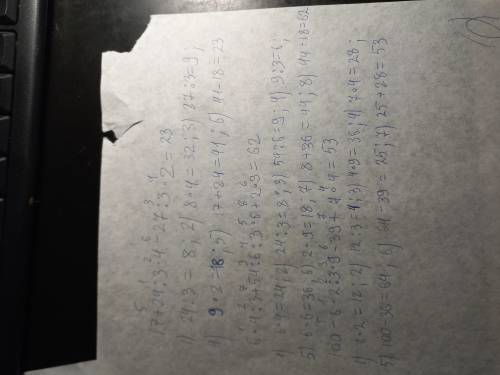 5 1 2 6 3 4
17+24:3·4-27:3·2=23
1) 24:3=8; 2) 8·4=32; 3) 27:3=9;
4) 9·2=18; 5) 7+34=41; 6) 41-18=23
1 2 7 3 4 5 8 6
6·4:3+54:6:3·6+2·9=62
1) 6·4=24; 2) 24:3=8; 3) 54:6=9; 4) 9:3=1;
5) 6·6=36; 6) 2·9=18, 7) 8+36=44; 8) 44+18=62
100-6·2:3·9-39+7·4=53
1) 6·2=12; 2) 12:3=4; 3) 4·9=36; 4) 7·4=28;
5) 100-36=64; 6) 64-39=25; 7) 25+28=53